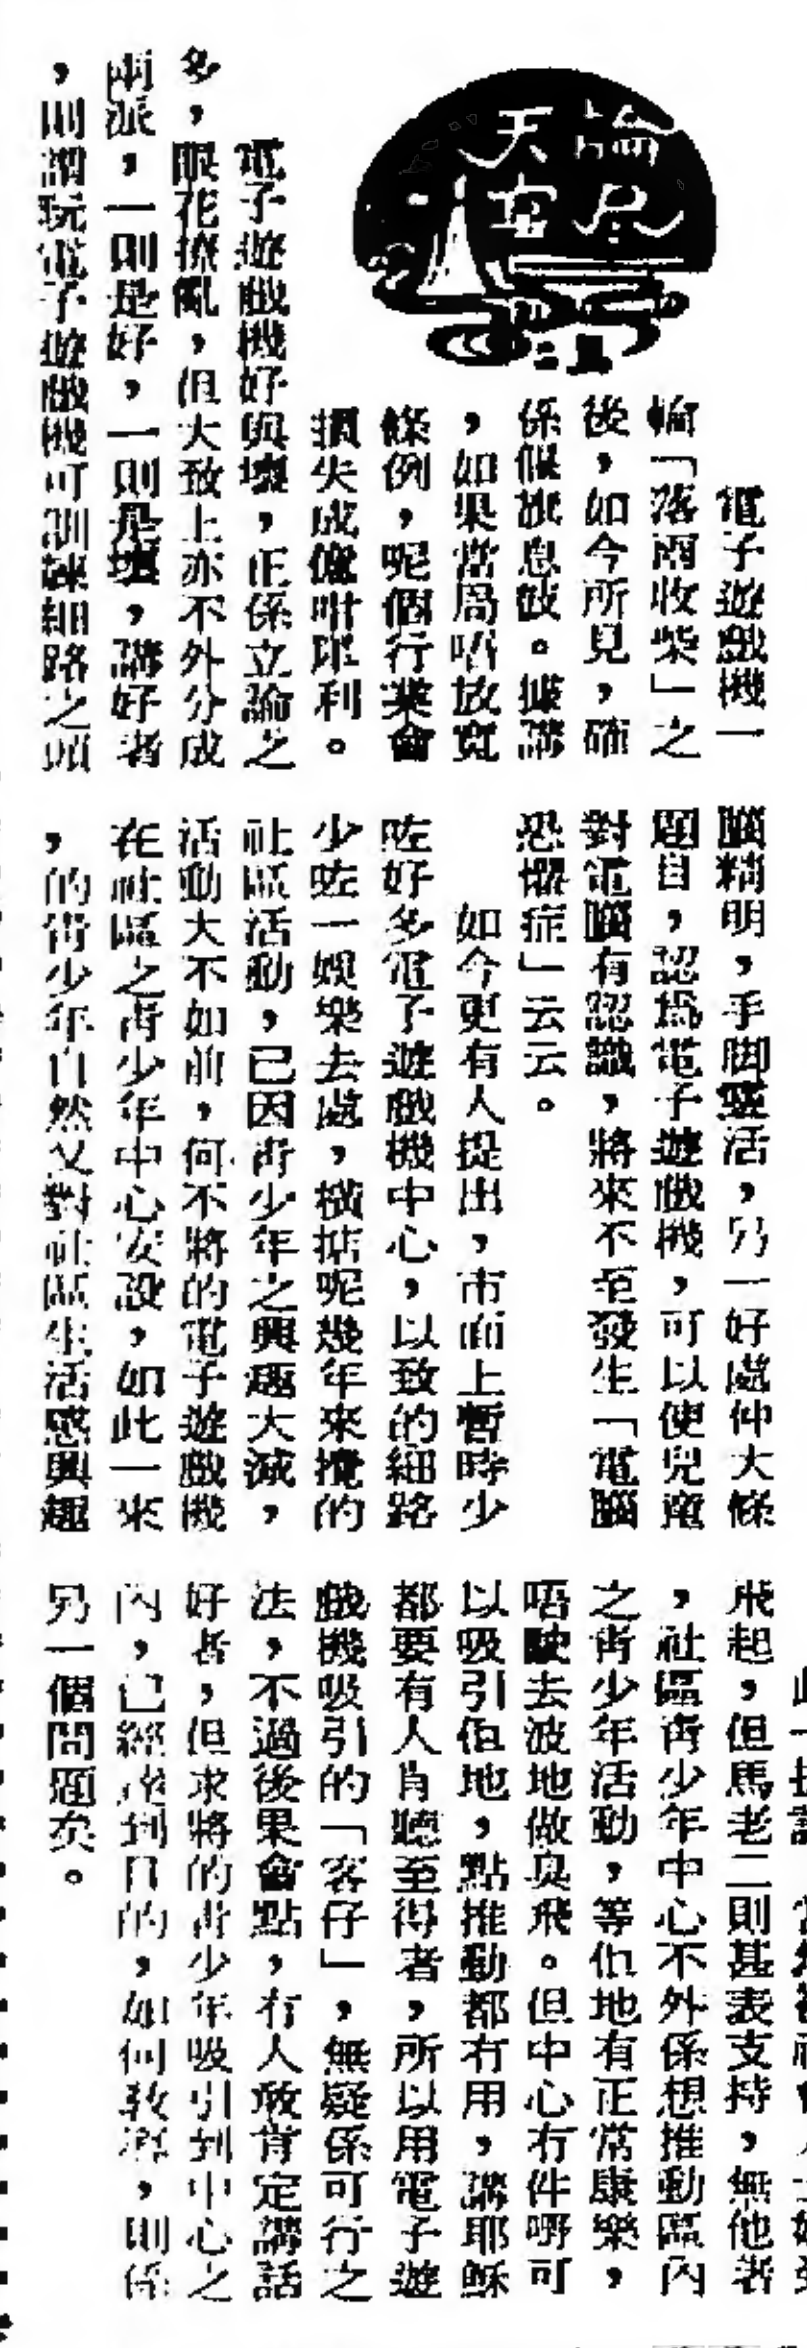 論尽
天窓
電子遊戲機一
輪「落雨收柴」之
後，如今所見，確
係偃旗息鼓。據講
，如果當局唔放寬
條例，呢個行業會
損失成億咁犀利。
電子遊戲機好與壞，正係立論之
多，眼花撩亂，但大致上亦不外分成
兩派，一則是好，一則是壞，講好者
，則謂玩電子遊戲機可訓練細路之頭
腦精明，手脚靈活，另一好處仲大條
題目，認爲電子遊戲機，可以使兒童
對電腦有認識，將來不至發生「電腦
恐懼症」云云。
如今更有人提出，市面上暫時少
咗好多電子遊戲機中心，以致的細路
少咗一娛樂去處，橫掂呢幾年來攪的
社區活動，已因靑少年之興趣大減，
活動大不如前，何不將的電子遊戲機
在社區之靑少年中心安設，如此一來
，的靑少年自然又對社區生活感興趣
飛起，但馬老二則甚表支持，無他者
，社區靑少年中心不外係想推動區內
之靑少年活動，等佢地有正常康樂，
唔駛去波地做臭飛。但中心冇件嘢可
以吸引佢地，點推動都冇用，講耶穌
都要有人肯聽至得者，所以用電子遊
戲機吸引的「客仔」，無疑係可行之
法，不過後果會點，冇人敢肯定講話
好者，但求將的靑少年吸引到中心之
內，已經達到目的，如何敎導，則係
另一個問題矣。